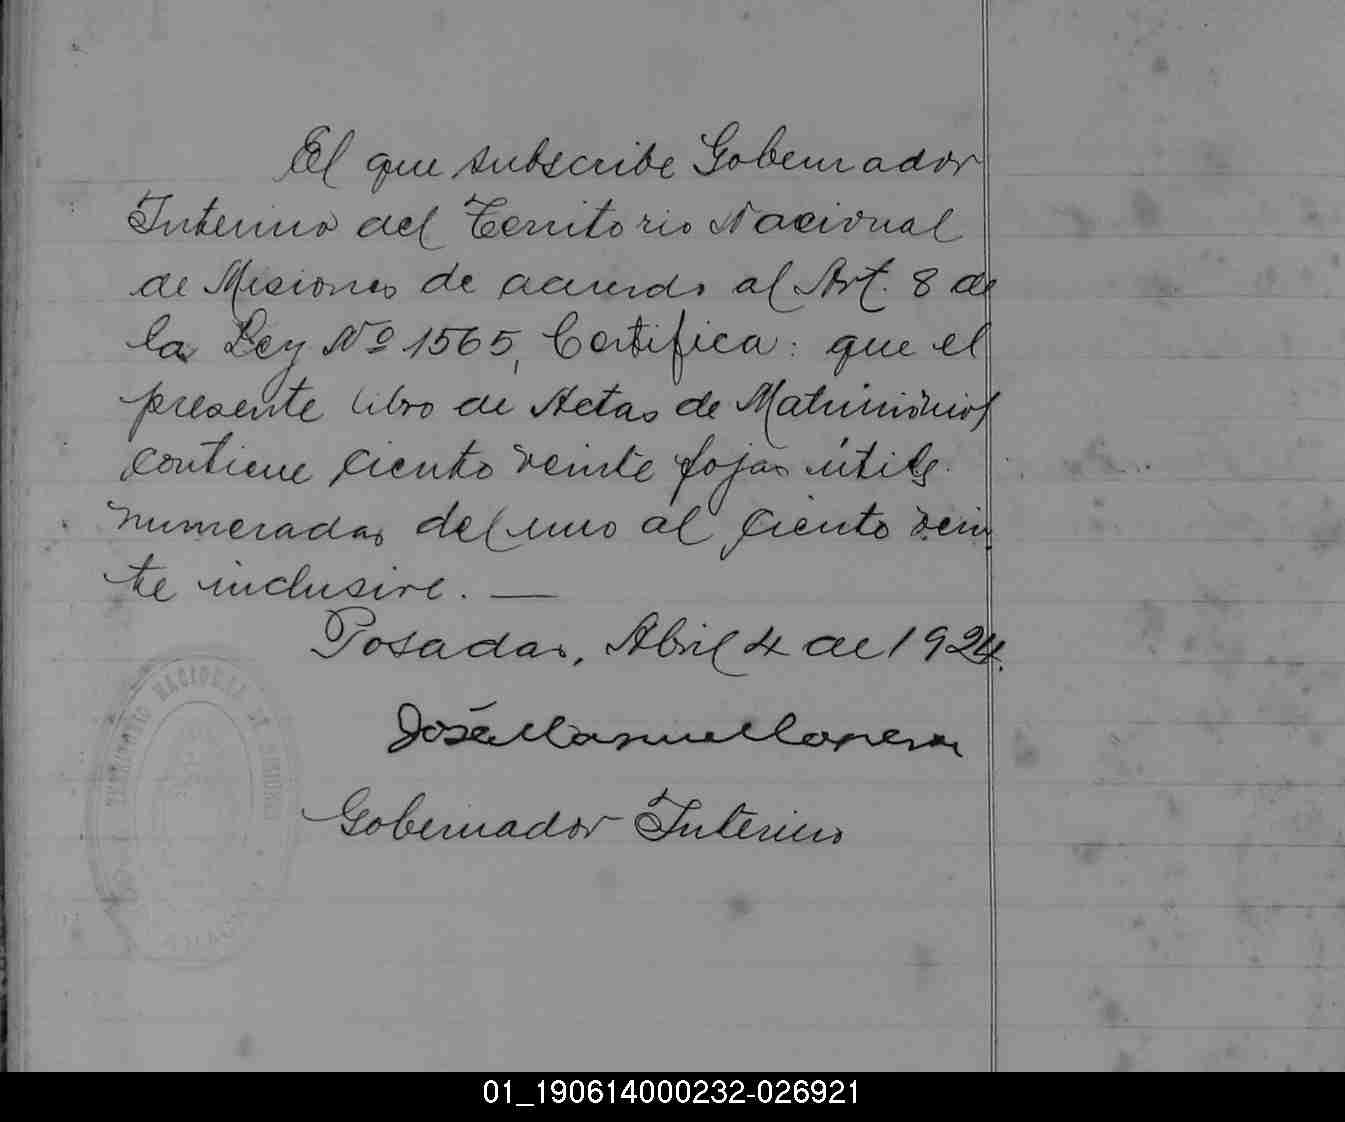 El que subscribe Gobernador
Interino del Territorio Nacional
de Misiones de acuerdo al Art. 8 de
la Ley Nº 1565, Certifica: que el
presente libro de Actas de Matrimonios
contiene ciento veinte fojas útiles
numeradas del uno al ciento vein
te inclusive. —
Posadas, Abril 4 de 1924.
José Manuel
Gobernador Interino
TERRITORIO NACIONAL DE MISIONES
01_190614000232-026921